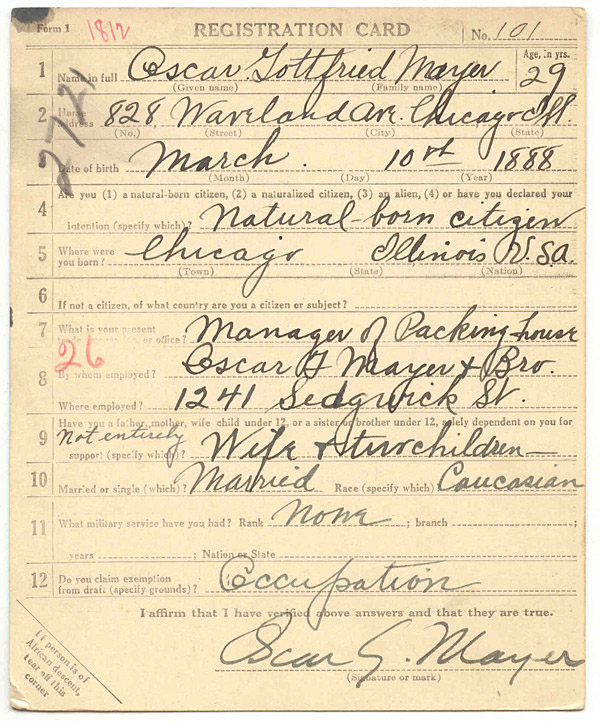 Form 1 1812 REGISTRATION CARD No. 101
1 Name in full Oscar Gottfried Mayer Age, in yrs. 29
(Given name) (Family name)
2 Home address 828 Waveland Ave. Chicago Ill.
(No.) (Street) (City) (State)
2721
3 Date of birth March 10th 1888
(Month) (Day) (Year)
Are you (1) a natural-born citizen, (2) a naturalized citizen, (3) an alien, (4) or have you declared your
4 intention (specify which)? Natural-born citizen
5 Where were you born? Chicago Illinois U.S.A.
(Town) (State) (Nation)
6 If not a citizen, of what country are you a citizen or subject?
7 What is your present or office? Manager of Packing house
26
8 By whom employed? Oscar F Mayer & Bro.
Where employed? 1241 Sedgwick St.
Have you a father, mother, wife child under 12, or a sister or brother under 12, solely dependent on you for
9 Not entirely
support (specify which)? Wife & two children
10 Married or single (which)? Married Race (specify which) Caucasian
11 What military service have you had? Rank None ; branch ;
years ; Nation or State
12 Do you claim exemption from draft (specify grounds)? Occupation
I affirm that I have verified above answers and that they are true.
Oscar G. Mayer
(Signature or mark)
If person is of
African descent,
tear off this
corner